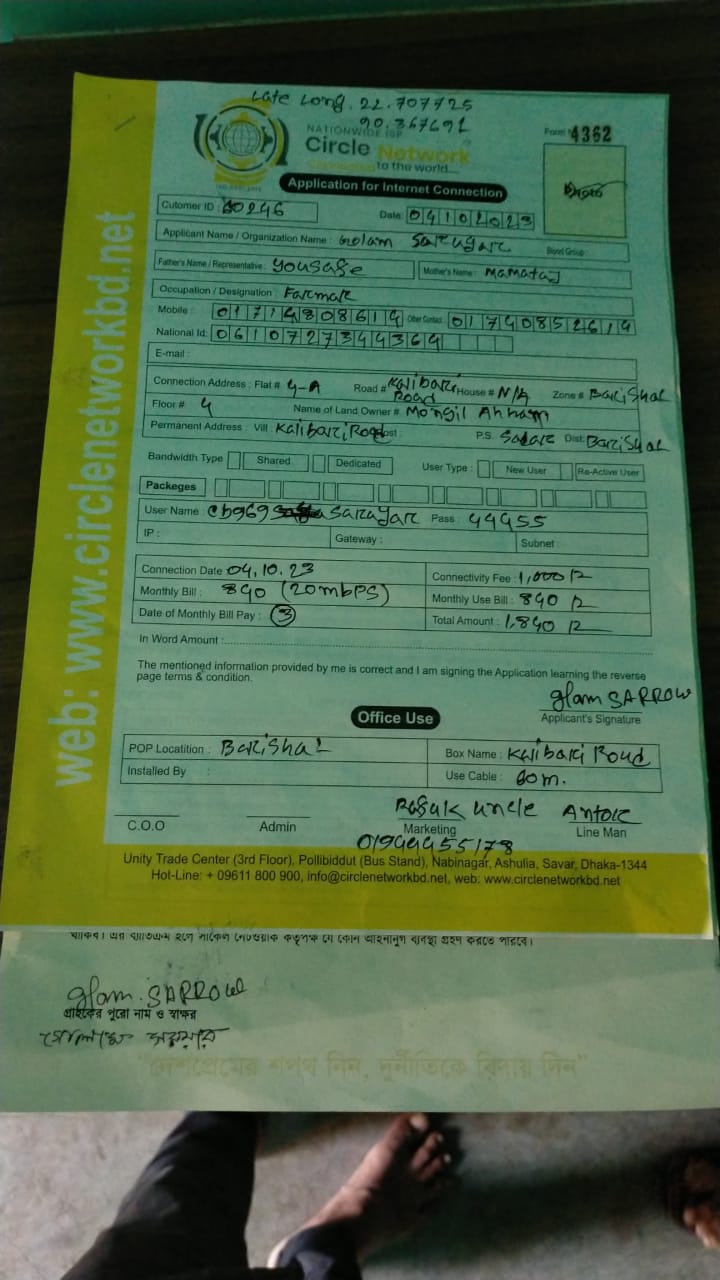 Late Long. 22.707725
90.367691
NATIONWIDE ISP
Circle Network
Connected to the world....
Form # 4362
Application for Internet Connection
Cutomer ID : 60246
Date: 04102023
Applicant Name / Organization Name : Golam Sarwar
Blood Group
Father's Name / Representative : Yousafe
Mother's Name : Mamataj
Occupation / Designation : Farmar
Mobile : 01714808614 Other Contact 01740852614
National Id: 0610727344364
E-mail :
Connection Address : Flat # 4-A Road # Kalibari Road House # N/A Zone # Barishal
Floor # 4 Name of Land Owner # Mongil Ahham
Permanent Address : Vill : Kalibari Road Post : P.S. Sadar Dist: Barishal
Bandwidth Type Shared Dedicated User Type : New User Re-Active User
Packeges
User Name : cb969 Pass : 44455
IP : Gateway : Subnet
Connection Date : 04.10.23
Connectivity Fee : 1,000
Monthly Bill : 840 (20mbps)
Monthly Use Bill : 840
Date of Monthly Bill Pay : 3
Total Amount : 1,840
In Word Amount :
The mentioned information provided by me is correct and I am signing the Application learning the reverse
page terms & condition.
glam SARROW
Applicant's Signature
Office Use
POP Locatition : Barishal
Box Name : Kalibari Road
Installed By :
Use Cable : 60m.
Uncle
C.O.O Admin Marketing Line Man
Unity Trade Center (3rd Floor), Pollibiddut (Bus Stand), Nabinagar, Ashulia, Savar, Dhaka-1344
Hot-Line: + 09611 800 900, info@circlenetworkbd.net, web: www.circlenetworkbd.net
web: www.circlenetworkbd.net
থাকিব। এর ব্যতিক্রম হলে সার্কেল নেটওয়ার্ক কতৃপক্ষ যে কোন আইনানুগ ব্যবস্থা গ্রহণ করতে পারবে।
glam. SARROW
গ্রাহকের পুরো নাম ও স্বাক্ষর
"দেশপ্রেমের শপথ নিন, দুর্নীতিকে বিদায় দিন"